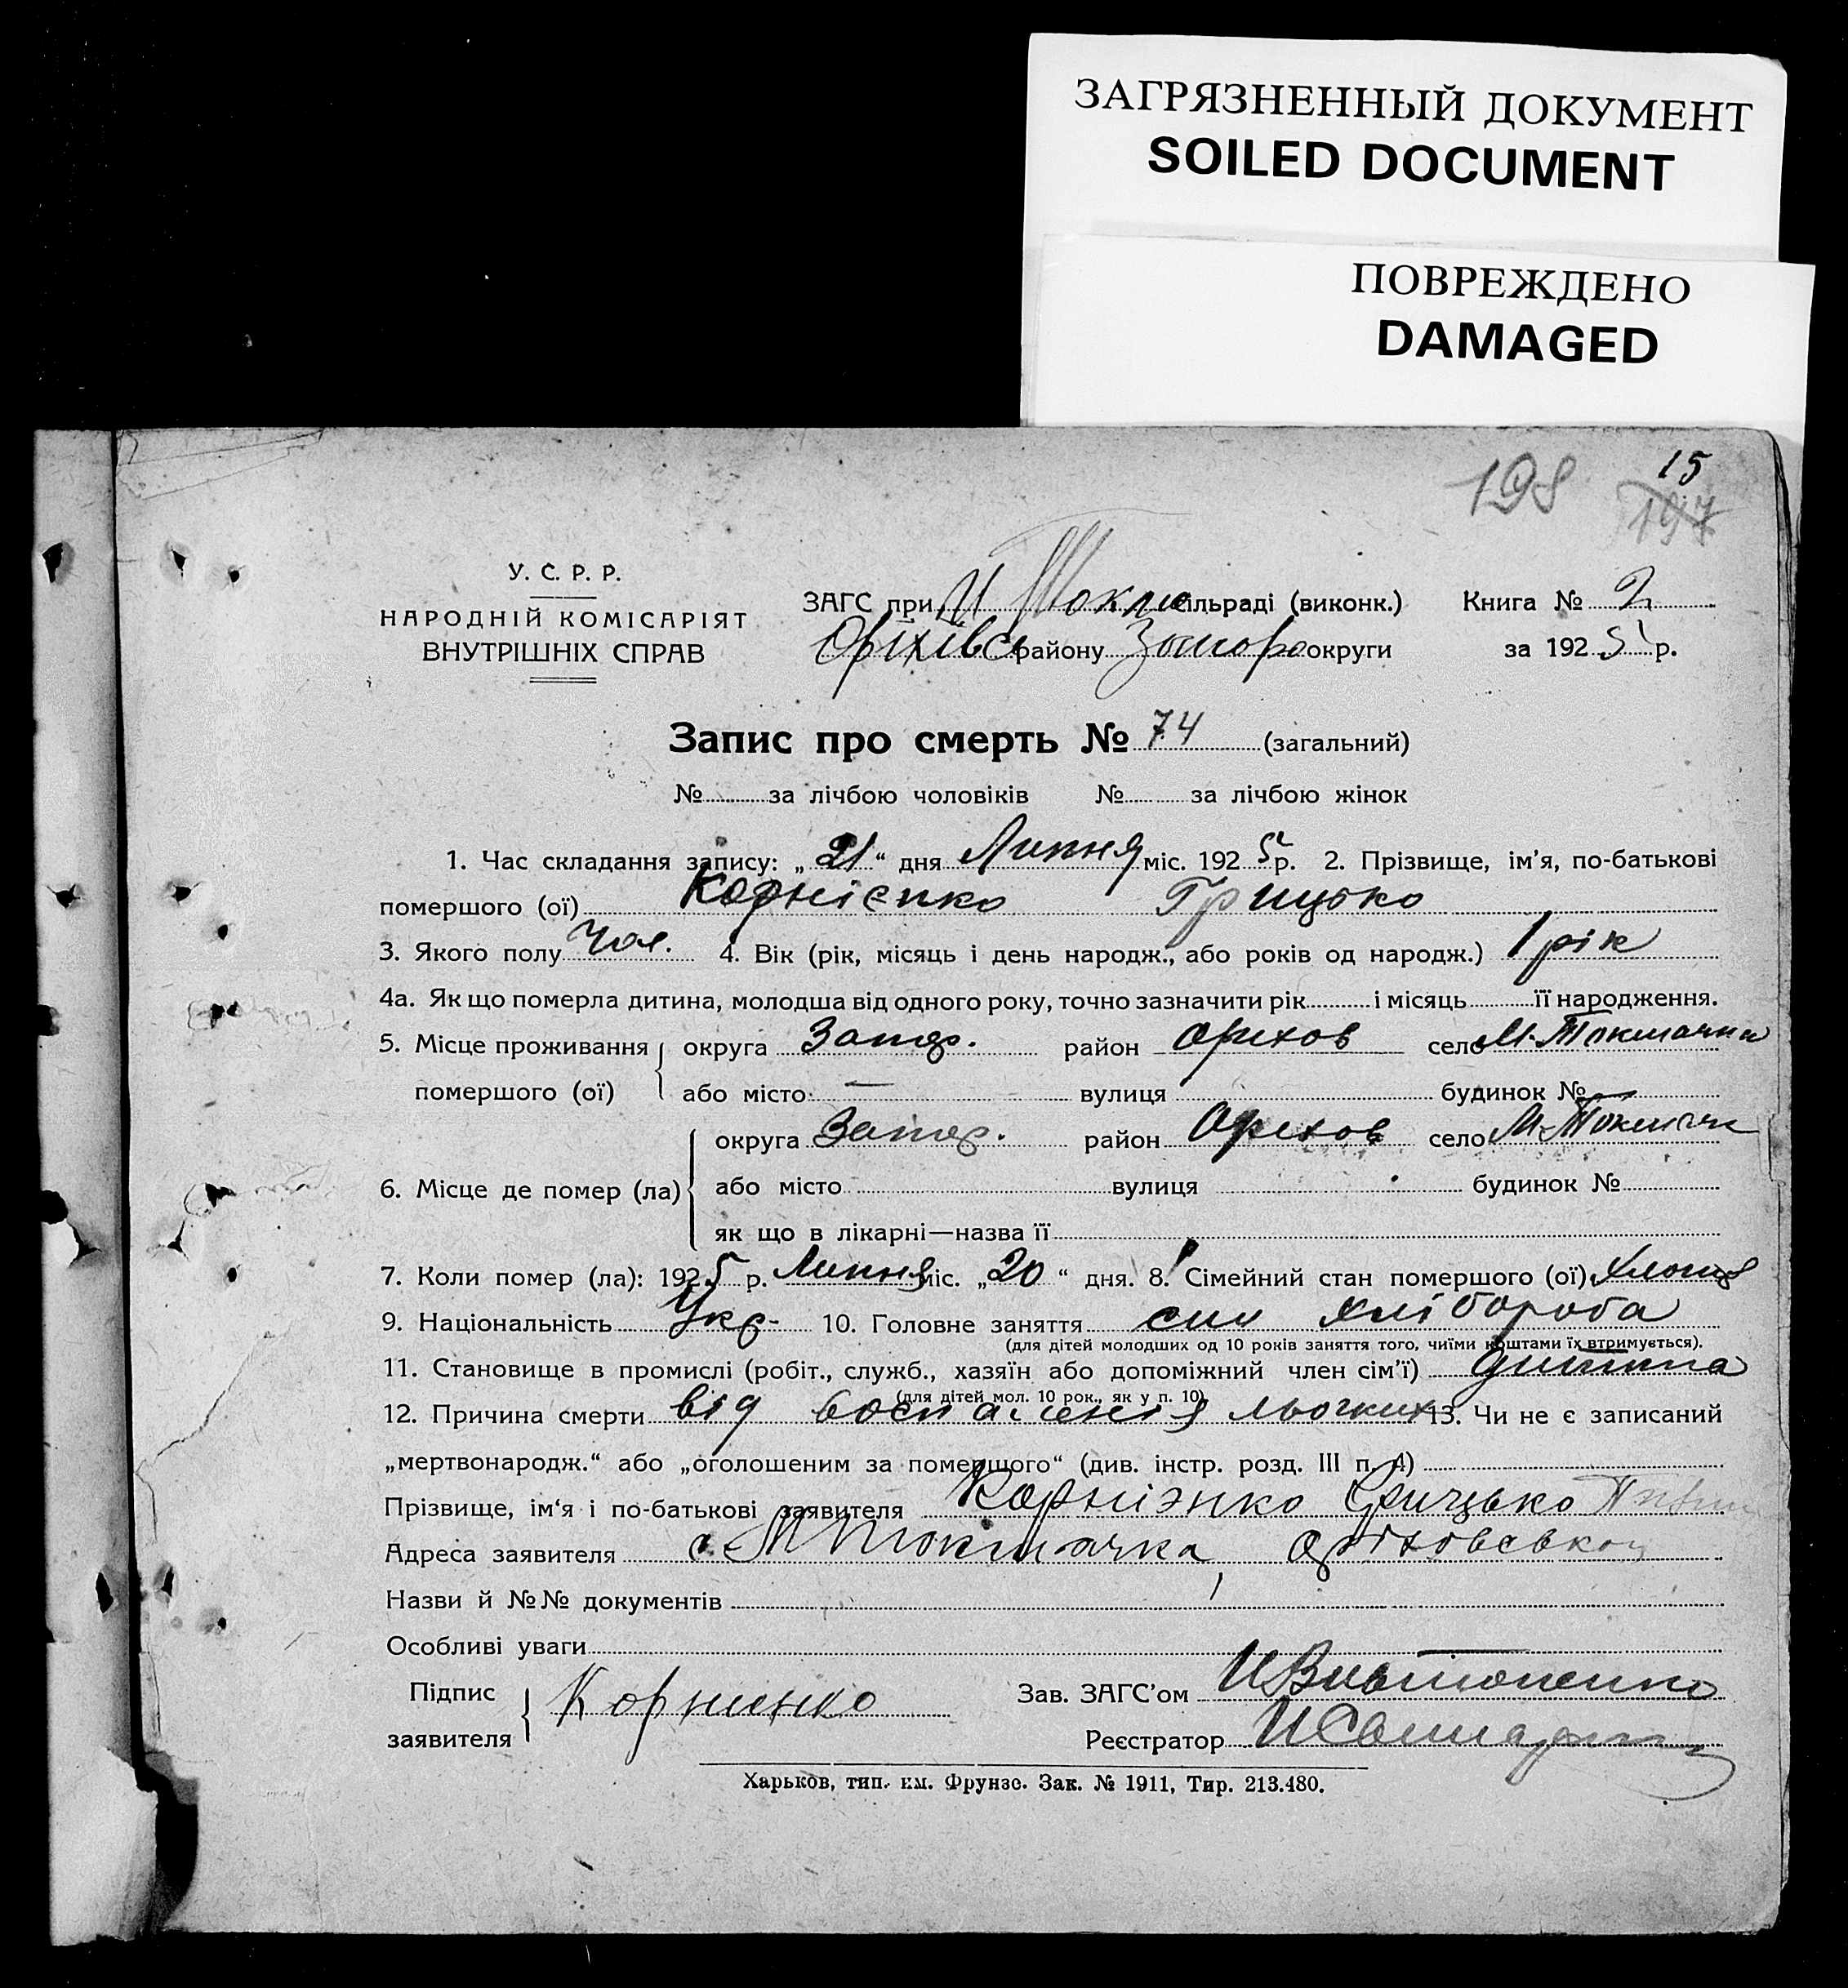 ЗАГРЯЗНЕННЫЙ ДОКУМЕНТ
SOILED DOCUMENT
ПОВРЕЖДЕНО
DAMAGED
15
198 197
У. С. Р. Р.
НАРОДНІЙ КОМІСАРІЯТ
ВНУТРІШНІХ СПРАВ
ЗАГС при сільраді (виконк.) Книга № 2
Оріхівс району округи за 1925 р.
Запис про смерть № 74 (загальний)
№ за лічбою чоловіків № за лічбою жінок
1. Час складання запису: „21“ дня Липня міс. 1925 р. 2. Прізвище, ім'я, по-батькові
помершого (ої) Корнієнко Грицько
3. Якого полу Чол. 4. Вік (рік, місяць і день народж., або років од народж.) 1 рік
4а. Як що померла дитина, молодша від одного року, точно зазначити рік і місяць її народження.
5. Місце проживання округа Запор. район Орехов село М-Токмачка
помершого (ої) або місто — вулиця будинок № —
округа Запор. район Орехов село М-Токмачк
6. Місце де помер (ла) або місто вулиця будинок №
як що в лікарні—назва її
7. Коли помер (ла): 1925 р. Липня міс. „20“ дня. 8. Сімейний стан помершого (ої)
9. Національність Укр. 10. Головне заняття син хлібороба
(для дітей молодших од 10 років заняття того, чиїми коштами їх втримується).
11. Становище в промислі (робіт., служб., хазяїн або допоміжний член сім'ї) дитина
(для дітей мол. 10 рок., як у п. 10)
12. Причина смерти від воспаленія льогких 13. Чи не є записаний
„мертвонародж.“ або „оголошеним за помершого“ (див. інстр. розд. III п. 4)
Прізвище, ім'я і по-батькові заявителя Корніэнко Грицько
Адреса заявителя с. М Токмачка,
Назви й №№ документів
Особливі уваги
Підпис заявителя Корниенко Зав. ЗАГС'ом
Реєстратор
Харьков, тип. им. Фрунзе. Зак. № 1911, Тир. 213.480.